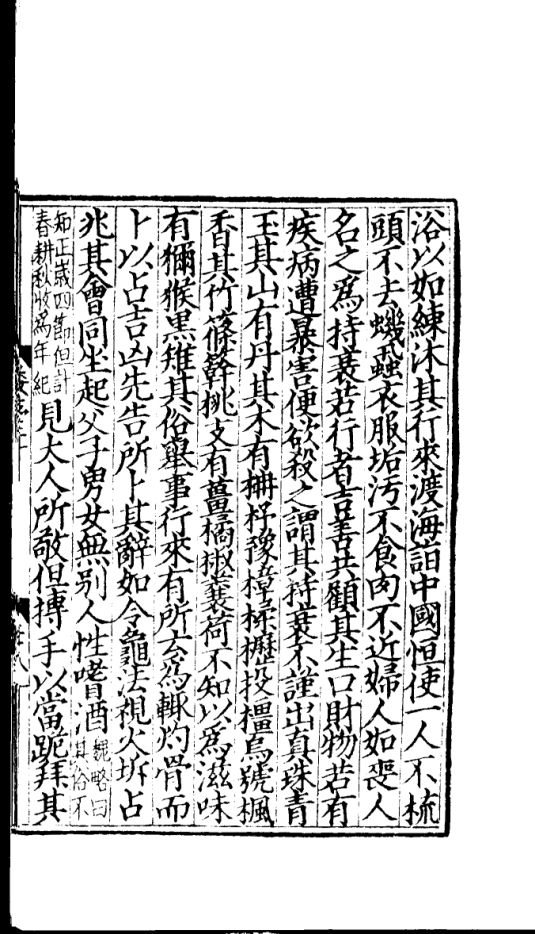 浴以如練沐其行來渡海詣中國恒使一人不梳
頭不去蟣蝨衣服垢汚不食肉不近婦人如喪人
名之爲持衰若行者吉善共顧其生口財物若有
疾病遭暴害便欲殺之謂其持衰不謹出真珠青
玉其山有丹其木有枏杼豫樟楺櫪投橿烏號楓
香其竹篠簳桃支有薑橘椒蘘荷不知以爲滋味
有獮猴黒雉其俗舉事行來有所云爲輒灼骨而
卜以占吉凶先告所卜其辭如令龜法視火坼占
兆其會同坐起父子男女無別人性嗜酒魏略曰其俗不
知正歳四節但計春耕秋收爲年紀見大人所敬但搏手以當跪拜其